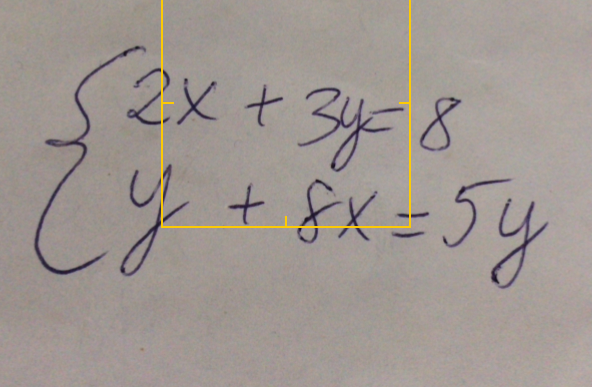 2x + 3y = 8
y + 8x = 5y